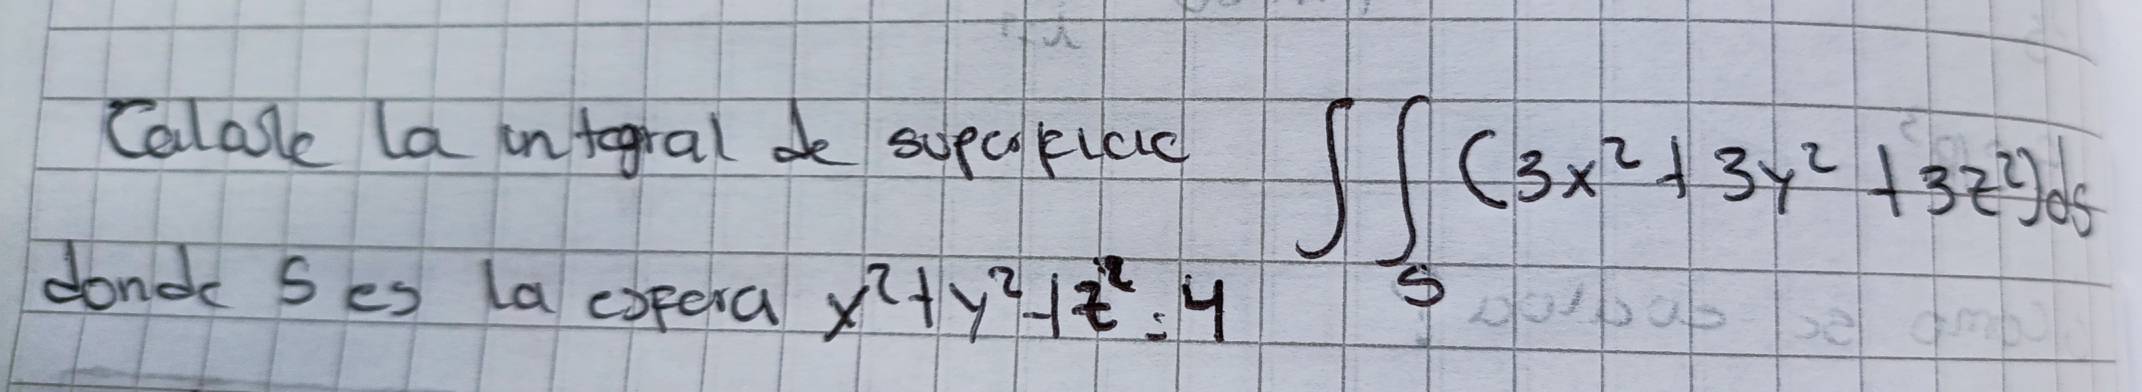 Calcule la integral de superficie ∫∫_S (3x² + 3y² + 3z²)ds
donde S es la esfera x² + y² + z² = 4